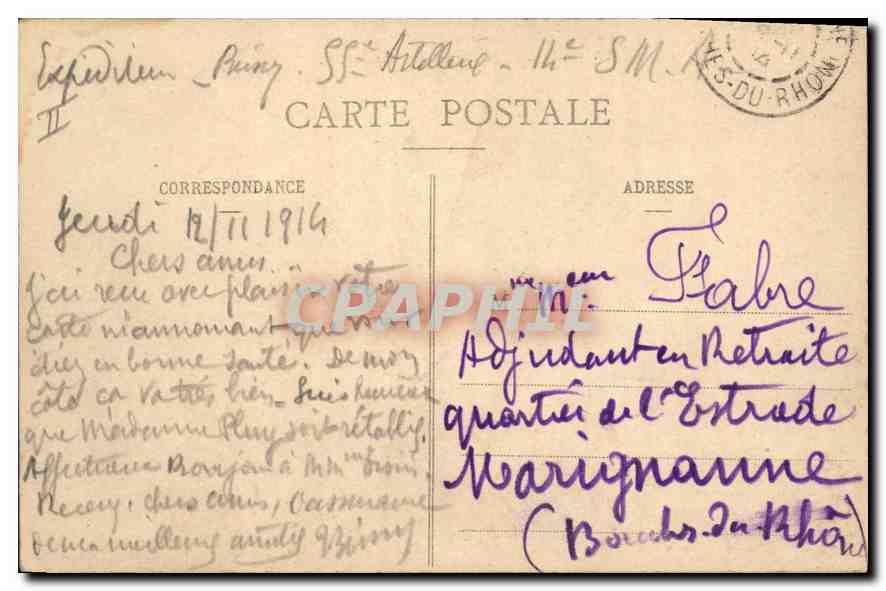 Expéditeur - Bussy. 55e Artillerie - 14e S M.
II
NES-DU-RHON
CARTE POSTALE
CORRESPONDANCE
Jeudi 12/11 1914
Chers amis
J'ai reçu avec plaisir votre
carte m'annonçant que vous
étiez en bonne santé. De mon
côté ça va très bien - Suis heureux
que Madame soit rétablie.
Affectueux Bonjour à Mme
Recevez, chers amis, l'assurance
de ma meilleure amitié Bussy
ADRESSE
Mme Mr. Fabre
Adjudant en Retraite
quartier de l'Estrade
Marignanne
(Bouches-du-Rhône
CPAPHIL